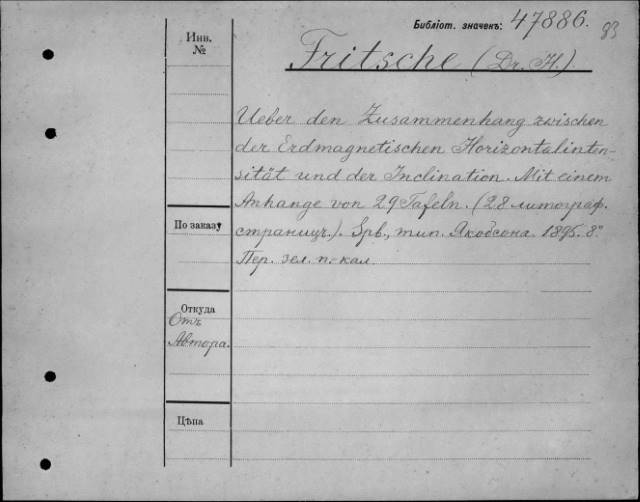 Библіот. значекъ: 47886.
83
Инв. №
Fritsche (Dr. H.)
Ueber den Zusammenhang zwischen
der Erdmagnetischen Horizontalinten-
sität und der Inclination. Mit einem
Anhange von 29 Tafeln. (28 литограф.
страницъ.). Spb., тип. Якобсона. 1895. 8°
Пер. зел. п.-кал.
По заказу
Откуда
Отъ
Автора.
Цѣна